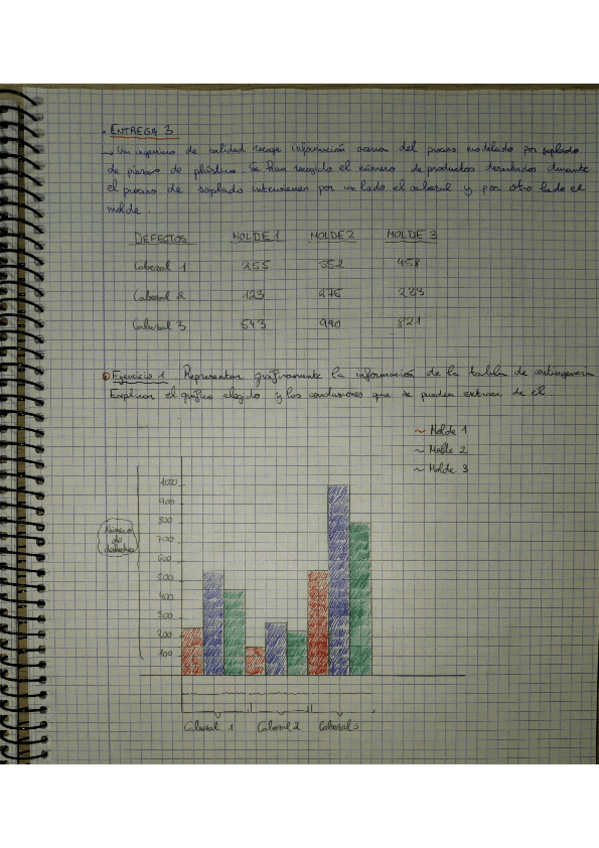 ENTREGA 3
→ Un ingeniero de calidad recoge información acerca del proceso modelado por soplado
de piezas de plástico. Se han recogido el número de productos desechados durante
el proceso de soplado intervienen por un lado el cabezal y por otro lado el
molde.
DEFECTOS MOLDE 1 MOLDE 2 MOLDE 3
Cabezal 1 255 552 458
Cabezal 2 123 276 233
Cabezal 3 543 990 821
Ejercicio 1 Representar gráficamente la información de la tabla de contingencia
Explicar el gráfico elegido y las conclusiones que se pueden extraer de él.
~ Molde 1
~ Molde 2
~ Molde 3
1000
900
800
700
600
500
400
300
200
100
Número
de
desechos
Cabezal 1 Cabezal 2 Cabezal 3